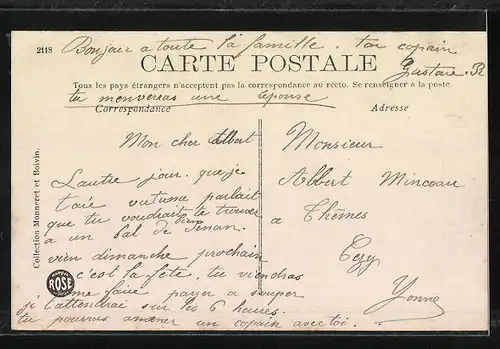 2118
Bonjour a toute la famille. ton copain
Gustave. R
CARTE POSTALE
Tous les pays étrangers n'acceptent pas la correspondance au recto. Se renseigner à la poste
tu menverras une réponse
Correspondance
Adresse
Mon cher Albert
Lautre jour que je
taié vutume parlait
que tu voudrait te trouver
a un bal de Senan.
bien
vien dimanche prochain
c'est la fête, tu viendras
me faire payer a souper
je t'attendrai sur les 6 heures.
tu pourras amener un copain avec toi.
Monsieur
Albert Minceau
a Thêmes
Cezy
Yonne
Collection Monneret et Boivin.
ROSE